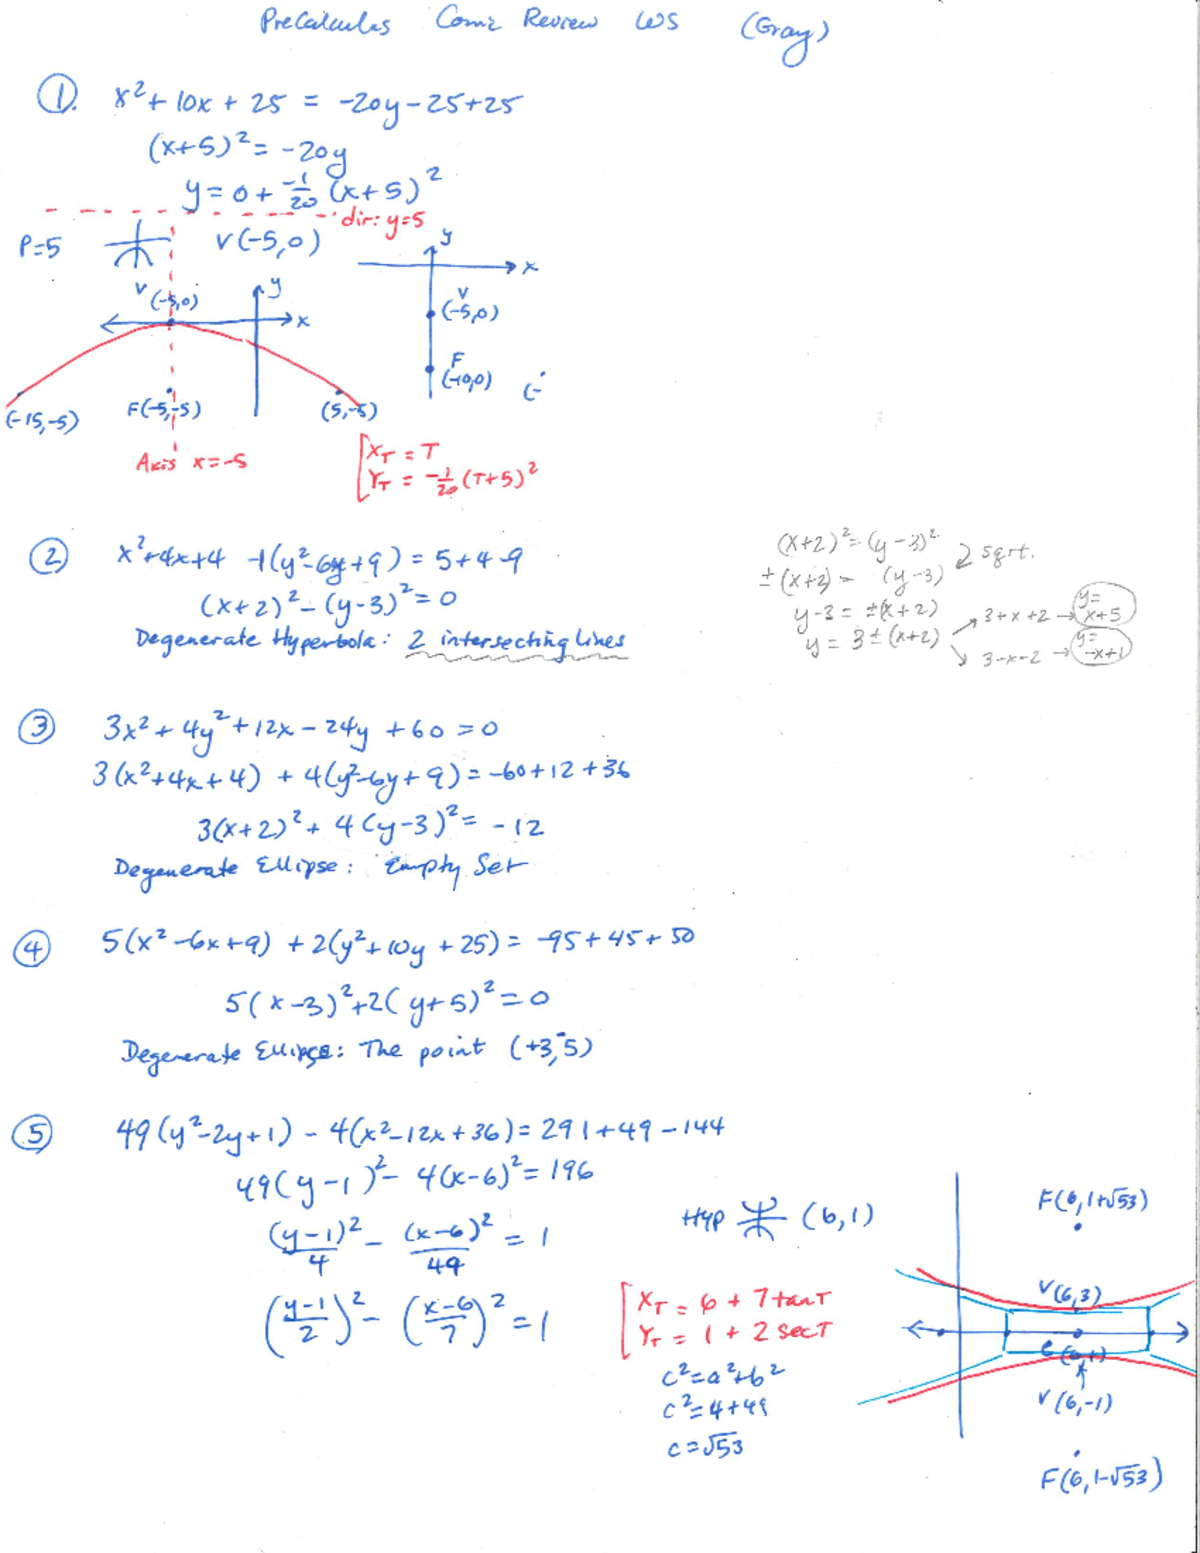 PreCalculus Conic Review WS (Gray)
① x² + 10x + 25 = -20y - 25 + 25
(x+5)² = -20y
y = 0 + -1/20 (x+5)²
dir: y=5
P=5 V(-5,0)
y
x
V (-5,0)
y
x
V
(-5,0)
F
(-10,0) (-
(-15,-5) F(-5,-5) (5,-5)
Axis x=-5
[X_T = T
Y_T = -1/20 (T+5)²
② x²+4x+4 -1(y²-6y+9) = 5+4-9
(x+2)² - (y-3)² = 0
Degenerate Hyperbola: 2 intersecting lines
(x+2)² = (y-3)²
sqrt.
±(x+2) = (y-3)
y-3 = ±(x+2)
y = 3 ± (x+2)
3+x+2 → y= x+5
3-x-2 → y= -x+1
③ 3x² + 4y² + 12x - 24y + 60 = 0
3(x²+4x+4) + 4(y²-6y+9) = -60+12+36
3(x+2)² + 4(y-3)² = -12
Degenerate Ellipse: Empty Set
④ 5(x²-6x+9) + 2(y²+10y+25) = -95+45+50
5(x-3)²+2(y+5)² = 0
Degenerate Ellipse: The point (+3,-5)
⑤ 49(y²-2y+1) - 4(x²-12x+36) = 291+49-144
49(y-1)² - 4(x-6)² = 196
(y-1)²/4 - (x-6)²/49 = 1
((y-1)/2)² - ((x-6)/7)² = 1
Hyp (6,1)
[X_T = 6 + 7tanT
Y_T = 1 + 2 secT
c²=a²+b²
c²=4+49
c=√53
F(6,1+√53)
V(6,3)
C(6,1)
V(6,-1)
F(6,1-√53)